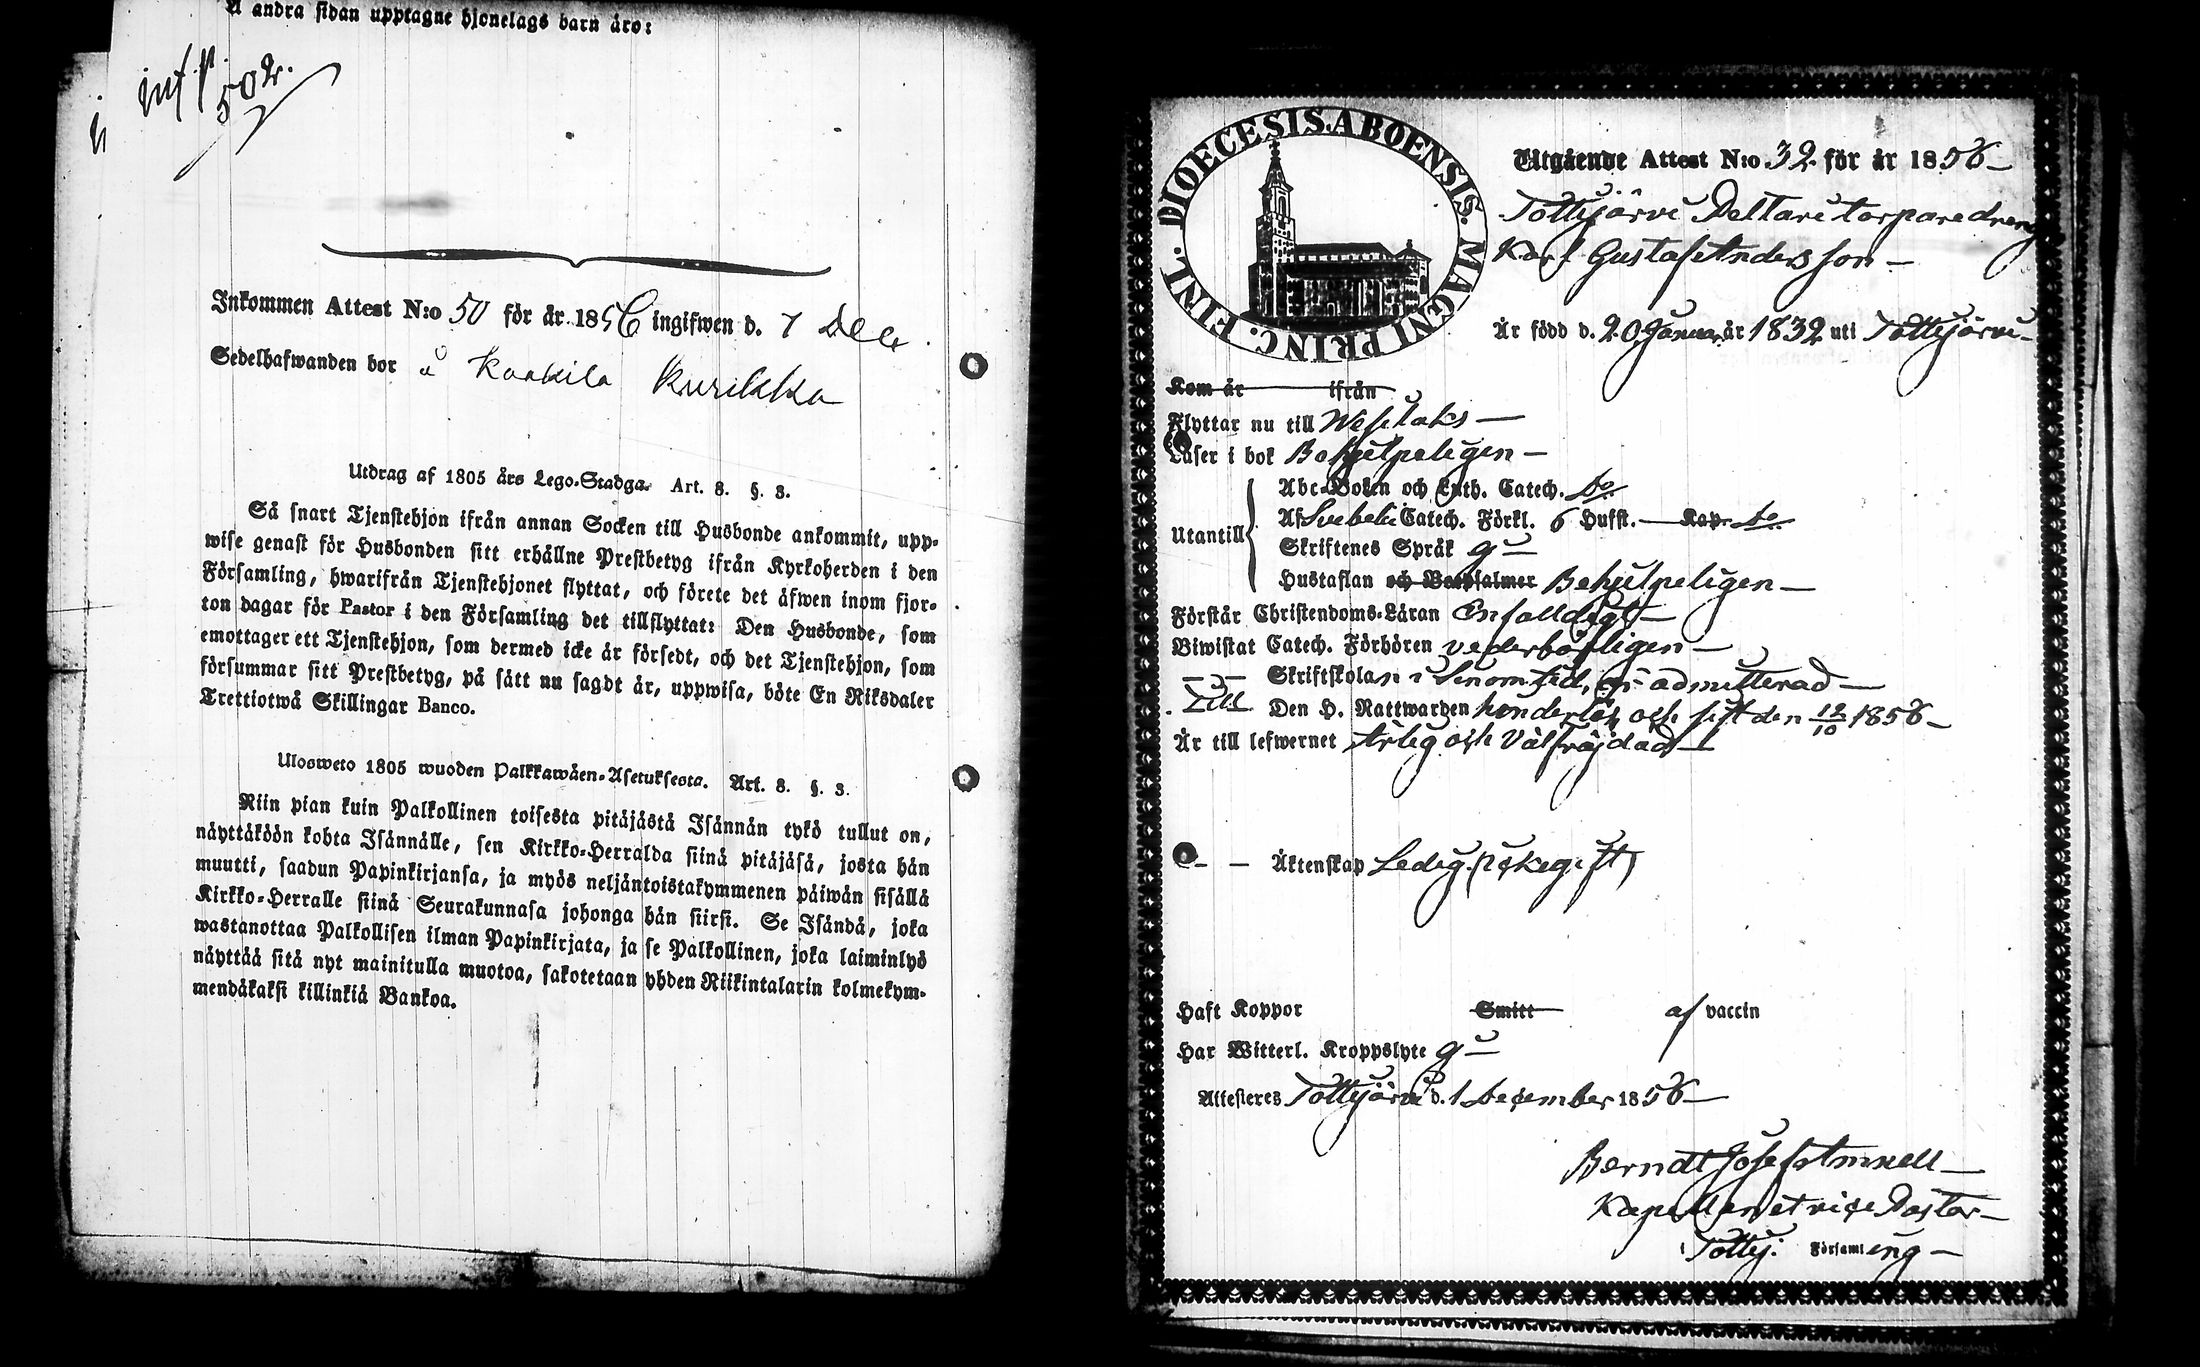 Å andra sidan upptagne hjonelags barn äro:
inf. p.
502.
Inkommen Attest N:o 50 för år 1856 ingifwen d. 7 Dec
Sedelhafwanden bor å Kaakila Kurikka
Utdrag af 1805 års Lego-Stadga. Art. 8. §. 3.
Så snart Tjenstehjon ifrån annan Socken till Husbonde ankommit, upp-
wise genast för Husbonden sitt erhållne Prestbetyg ifrån Kyrkoherden i den
Församling, hwarifrån Tjenstehjonet flyttat, och förete det äfwen inom fjor-
ton dagar för Pastor i den Församling det tillflyttat: Den Husbonde, som
emottager ett Tjenstehjon, som dermed icke är försedt, och det Tjenstehjon, som
försummar sitt Prestbetyg, på sätt nu sagdt är, uppwisa, böte En Riksdaler
Trettiotwå Skillingar Banco.
Ulosweto 1805 wuoden Palkkawäen-Asetuksesta. Art. 8. §. 3.
Niin pian kuin Palkollinen toisesta pitäjästä Isännän tykö tullut on,
näyttäköön kohta Isännälle, sen Kirkko-Herralda siinä pitäjäsä, josta hän
muutti, saadun Papinkirjansa, ja myös neljäntoistakymmenen päiwän sisällä
Kirkko-Herralle siinä Seurakunnasa johonga hän siirsi. Se Isändä, joka
wastanottaa Palkollisen ilman Papinkirjata, ja se Palkollinen, joka laiminlyö
näyttää sitä nyt mainitulla muotoa, sakotetaan yhden Riikintalarin kolmekym-
mendäkaksi killinkiä Bankoa.
DIOECESIS. ABOENSIS. MAGNI PRINC. FINL.
Utgående Attest N:o 32 för år 1856
Tottijärvi Deltari torparedreng
Karl Gustaf Andersson
Är född d. 20 Januari år 1832 uti Tottijärvi
Kom år ifrån
Flyttar nu till Wesilaks
Läser i bok Behjelpeligen
Abc-Boken och Luth. Catech. do
Utantill Af Svebelii Catech. Förkl. 6 Hufst. Kap. do
Skriftenes Språk ej
Hustaflan och Botpsalmer Behjelpeligen
Förstår Christendoms-Läran Enfalldigt
Biwistat Catech. Förhören vederbörligen
Skriftskolan admitterad
Till Den H. Nattwarden och sist den 12/10 1856
Är till lefwernet Ärlig och Välfräjdad
Äktenskap Ledig (ickegift)
Haft Koppor Smitt af vaccin
Har Witterl. Kroppslyte ej
Attesteres Tottijärvi d. 1 December 1856
Berndt Josef Amnell
Kapellan et vice Pastor
i Tottij. Församling